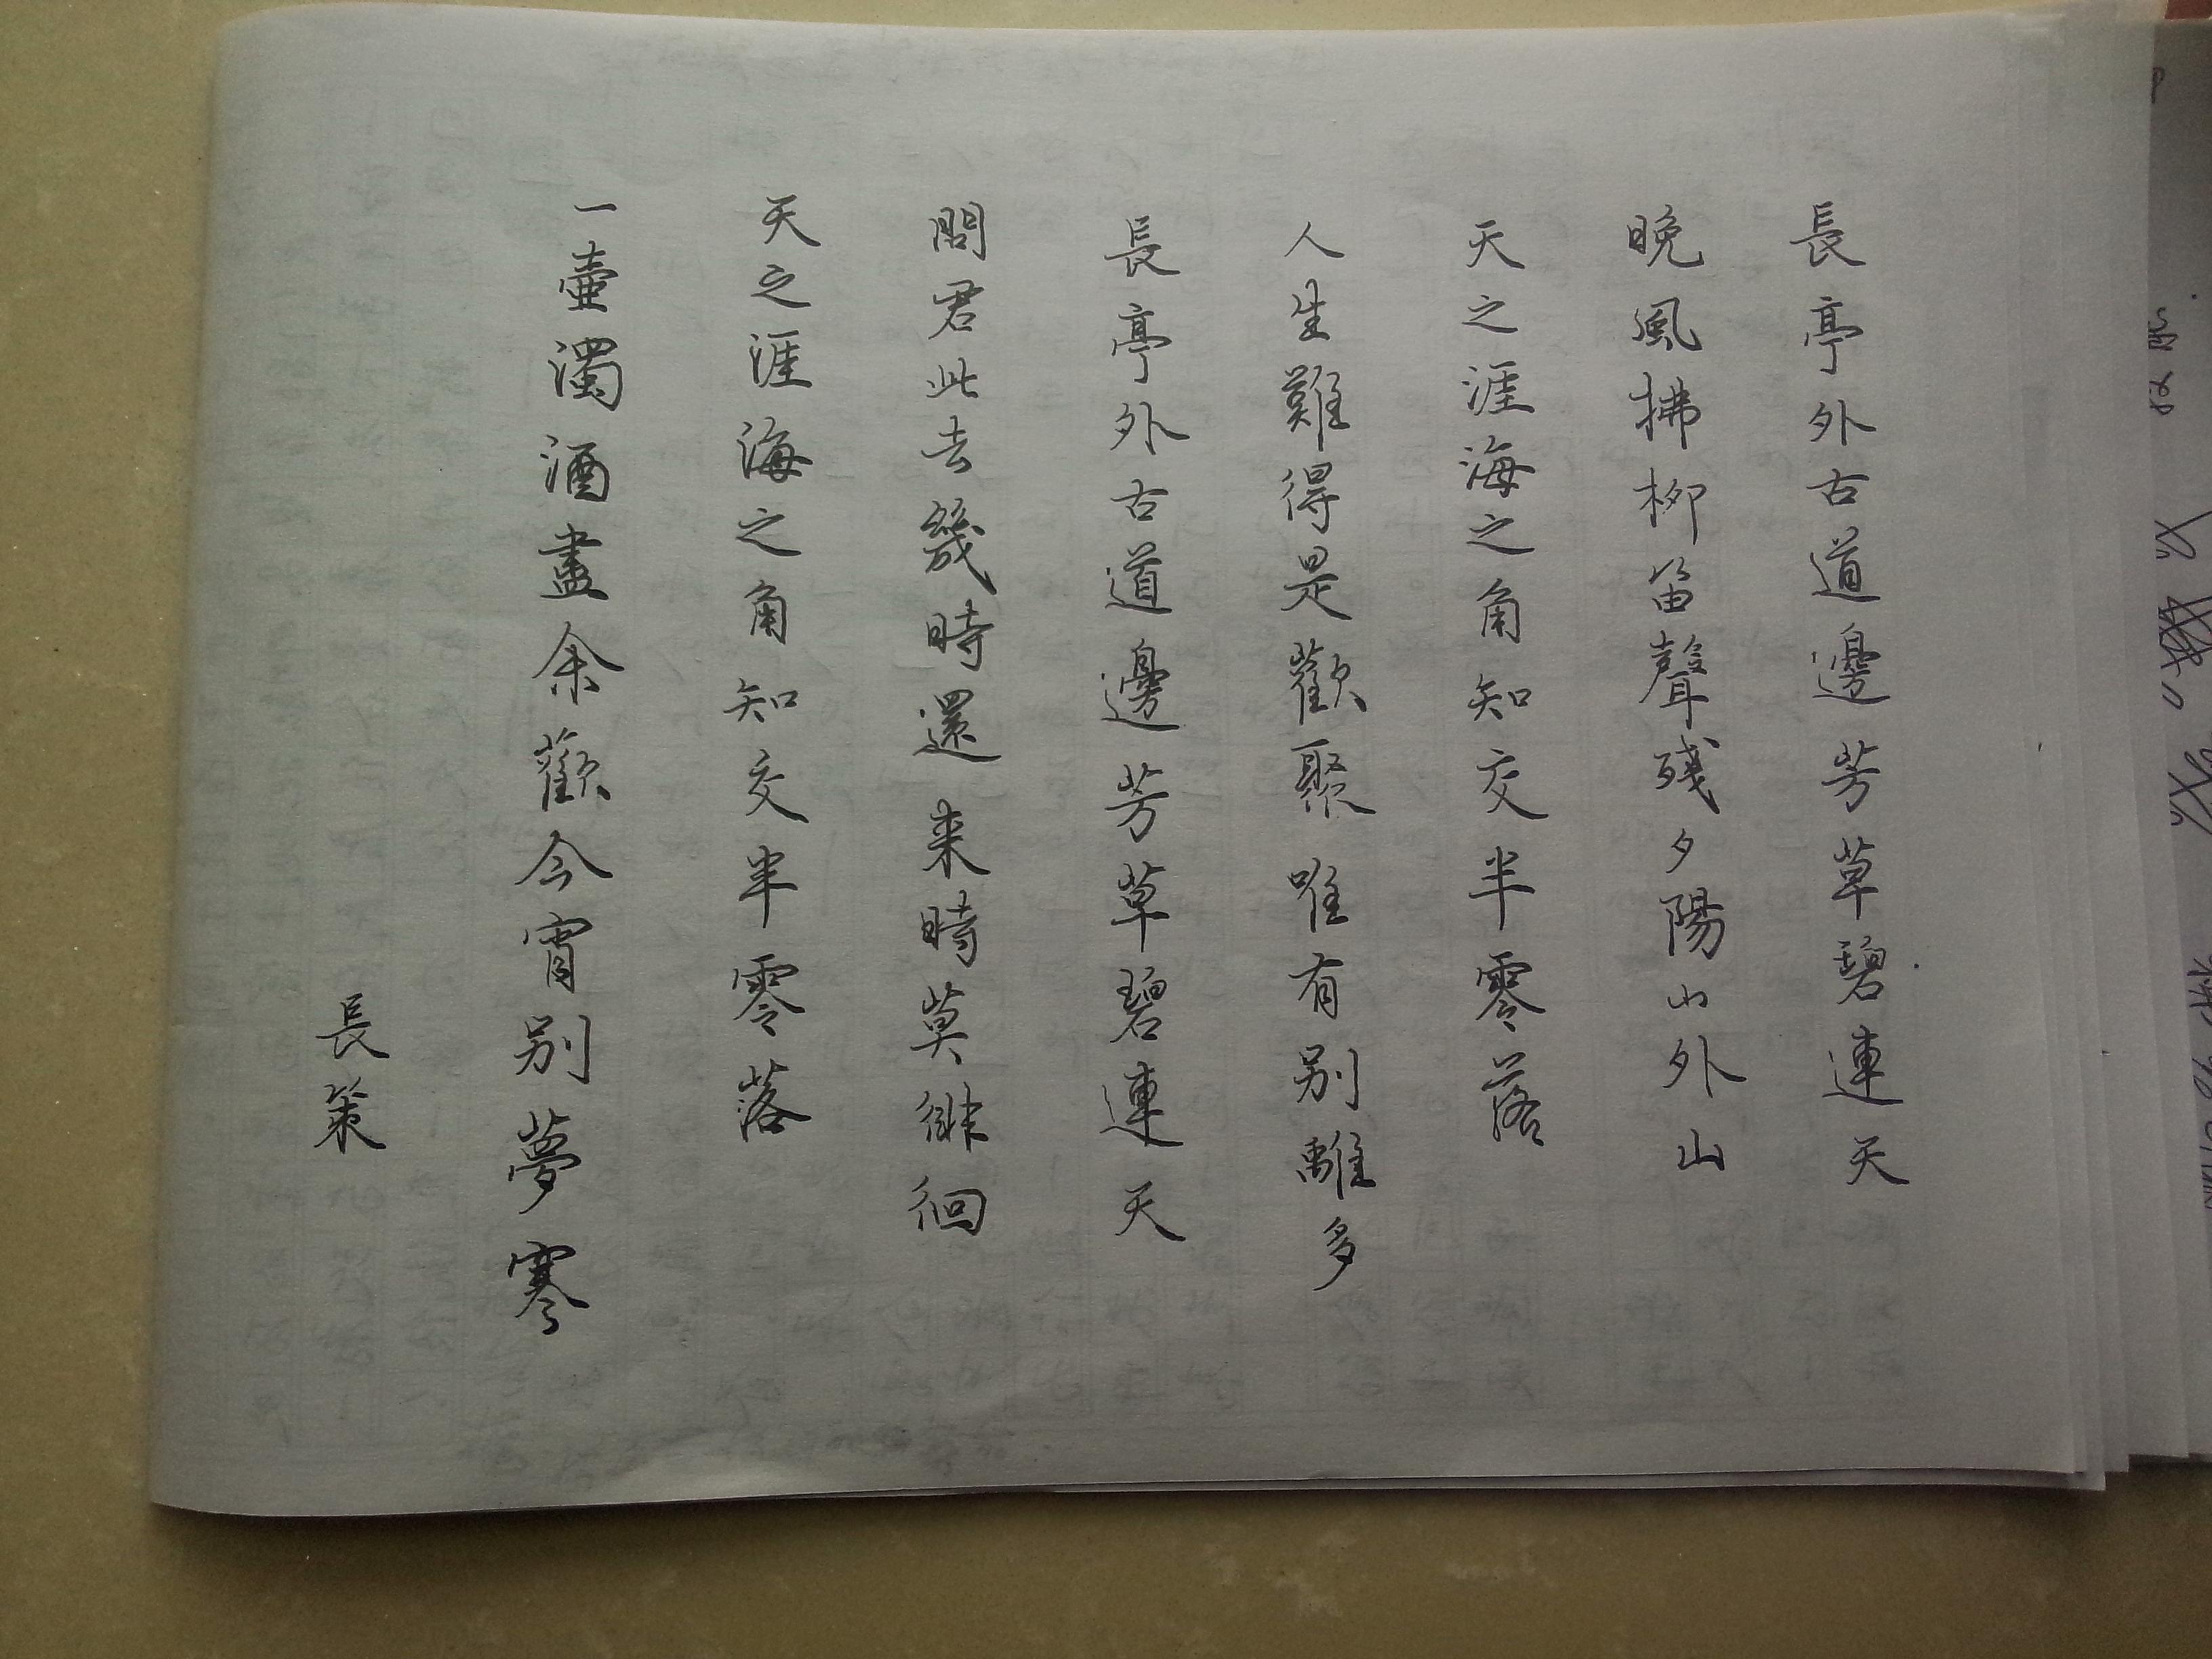 長亭外古道邊芳草碧連天
晚風拂柳笛聲殘夕陽山外山
天之涯海之角知交半零落
人生難得是歡聚唯有别離多
長亭外古道邊芳草碧連天
問君此去幾時還来時莫徘徊
天之涯海之角知交半零落
一壺濁酒盡余歡今宵别夢寒
長策